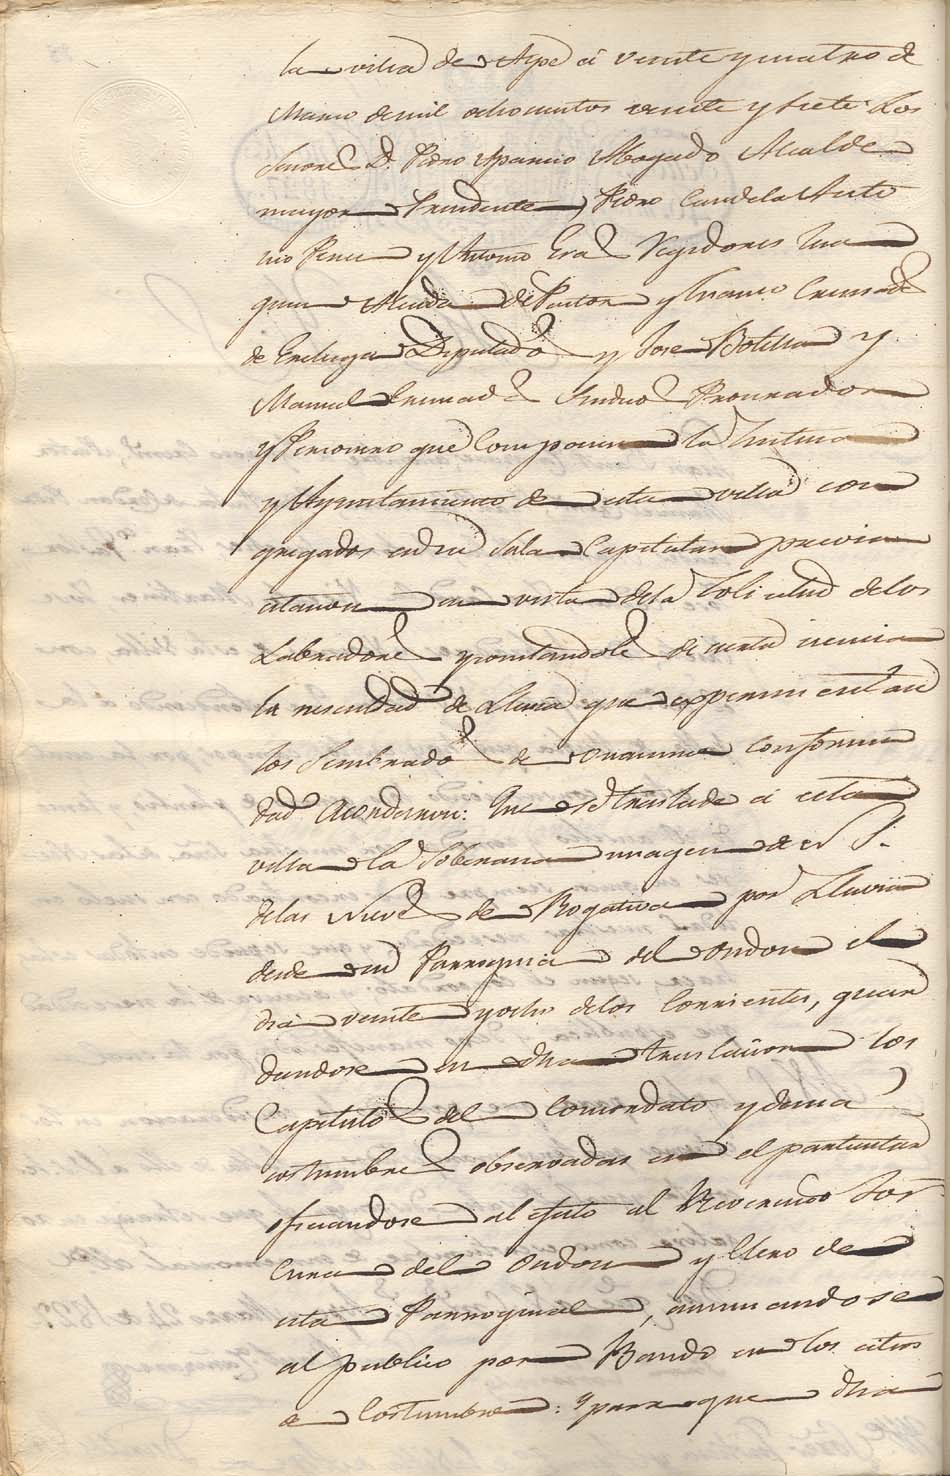 la villa de Aspe á veinte y cuatro de
Marzo de mil ochocientos veinte y siete Los
Señores D. Pedro Aparicio Abogado Alcalde
mayor Presidente, Pedro Candela Anto
nio Perez y Antonio Eras Regidores Joa
quin Alcuda de Pastor y Franco Cremades
de Diputados y Jose Botella y
Manuel Cremades Sindicos Procurador
y Personero que componen la Justicia
y Ayuntamiento de esta villa con
gregados en su Sala Capitular previa
citacion en vista de la Solicitud de los
Labradores y constandoles de cierta ciencia
la necesidad de Lluvia que experimentan
los Sembrados de unanime conformi
dad Acordaron: Que se traslade á esta
villa la Soberana imagen de N. S.
de las Nieves de Rogativa por Lluvia
desde su Parroquia del Ondon el
dia veinte y ocho de los Corrientes, guar
dandose en dha traslacion los
Capitulos del Concordato y demas
costumbres observadas en el particular
oficiandose al efecto al Reverendo Sor
Cura del Ondon y Clero de
esta Parroquial, anunciandose
al publico por Bando en los citios
de Costumbre: y para que dha